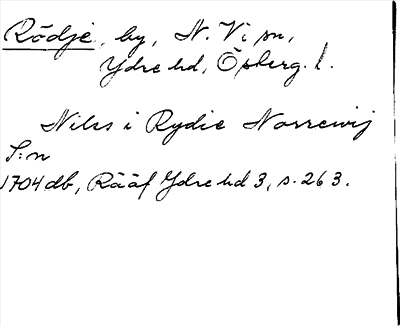 Rödje, by, N. Vi sn,
Ydre hd, Öpberg. l.
Nils i Rydie Norrewij
S:n
1704 db, Rääf Ydre hd 3, s. 263.